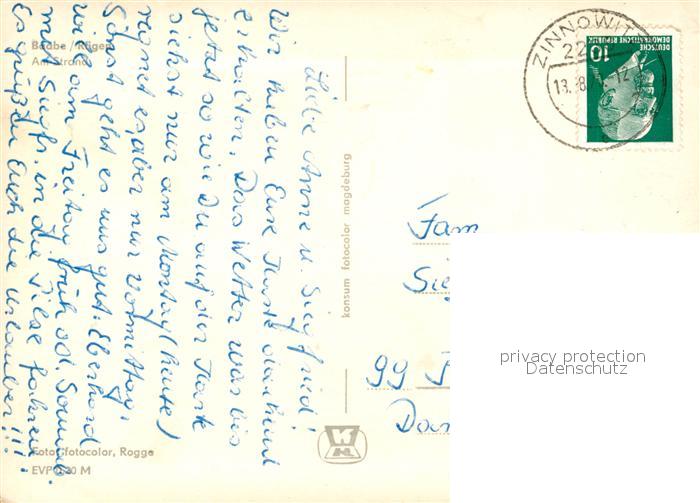 Baabe / Rügen
Am Strand
Liebe Anne u. Siegfried!
Wir haben Eure Karte dankend
erhalten. Das Wetter war bis
jetzt so wie Du auf der Karte
siehst nur am Montag (heute)
regnet es, aber nur Vormittag.
Sonst geht es uns gut. Eberhard
will am Freitag früh od. Sonnab.
mit Siegfr. in die fahren
Es grüßen Euch die Urlauber!!!
Foto: fotocolor, Rogge
EVP 0,20 M
konsum fotocolor magdeburg
ZINNOWITZ
22
13. 8. 12
DEUTSCHE
DEMOKRATISCHE REPUBLIK
10
Fam
Sie
99 P
Dor
privacy protection
Datenschutz